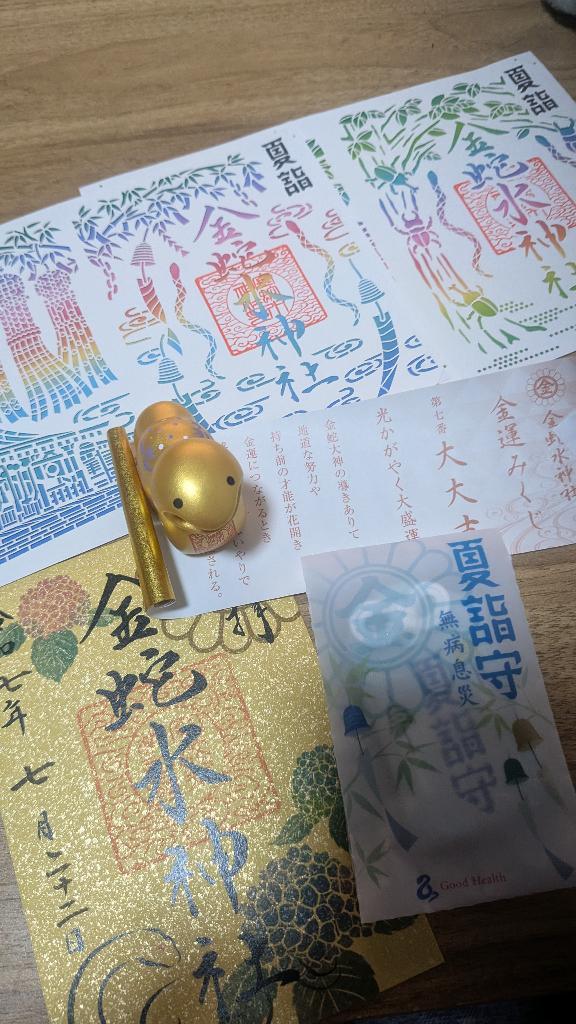 夏詣
金蛇水神社
夏詣
金蛇水神社
金
金蛇水神社
金運みくじ
第七番
大大吉
光かがやく大盛運
金蛇大神の導きありて
地道な努力や
持ち前の才能が花開き
金運につながるとき
いやりで
される。
拝
金蛇水神社
令和七年七月二十二日
夏詣守
無病息災
夏詣守
金
Good Health